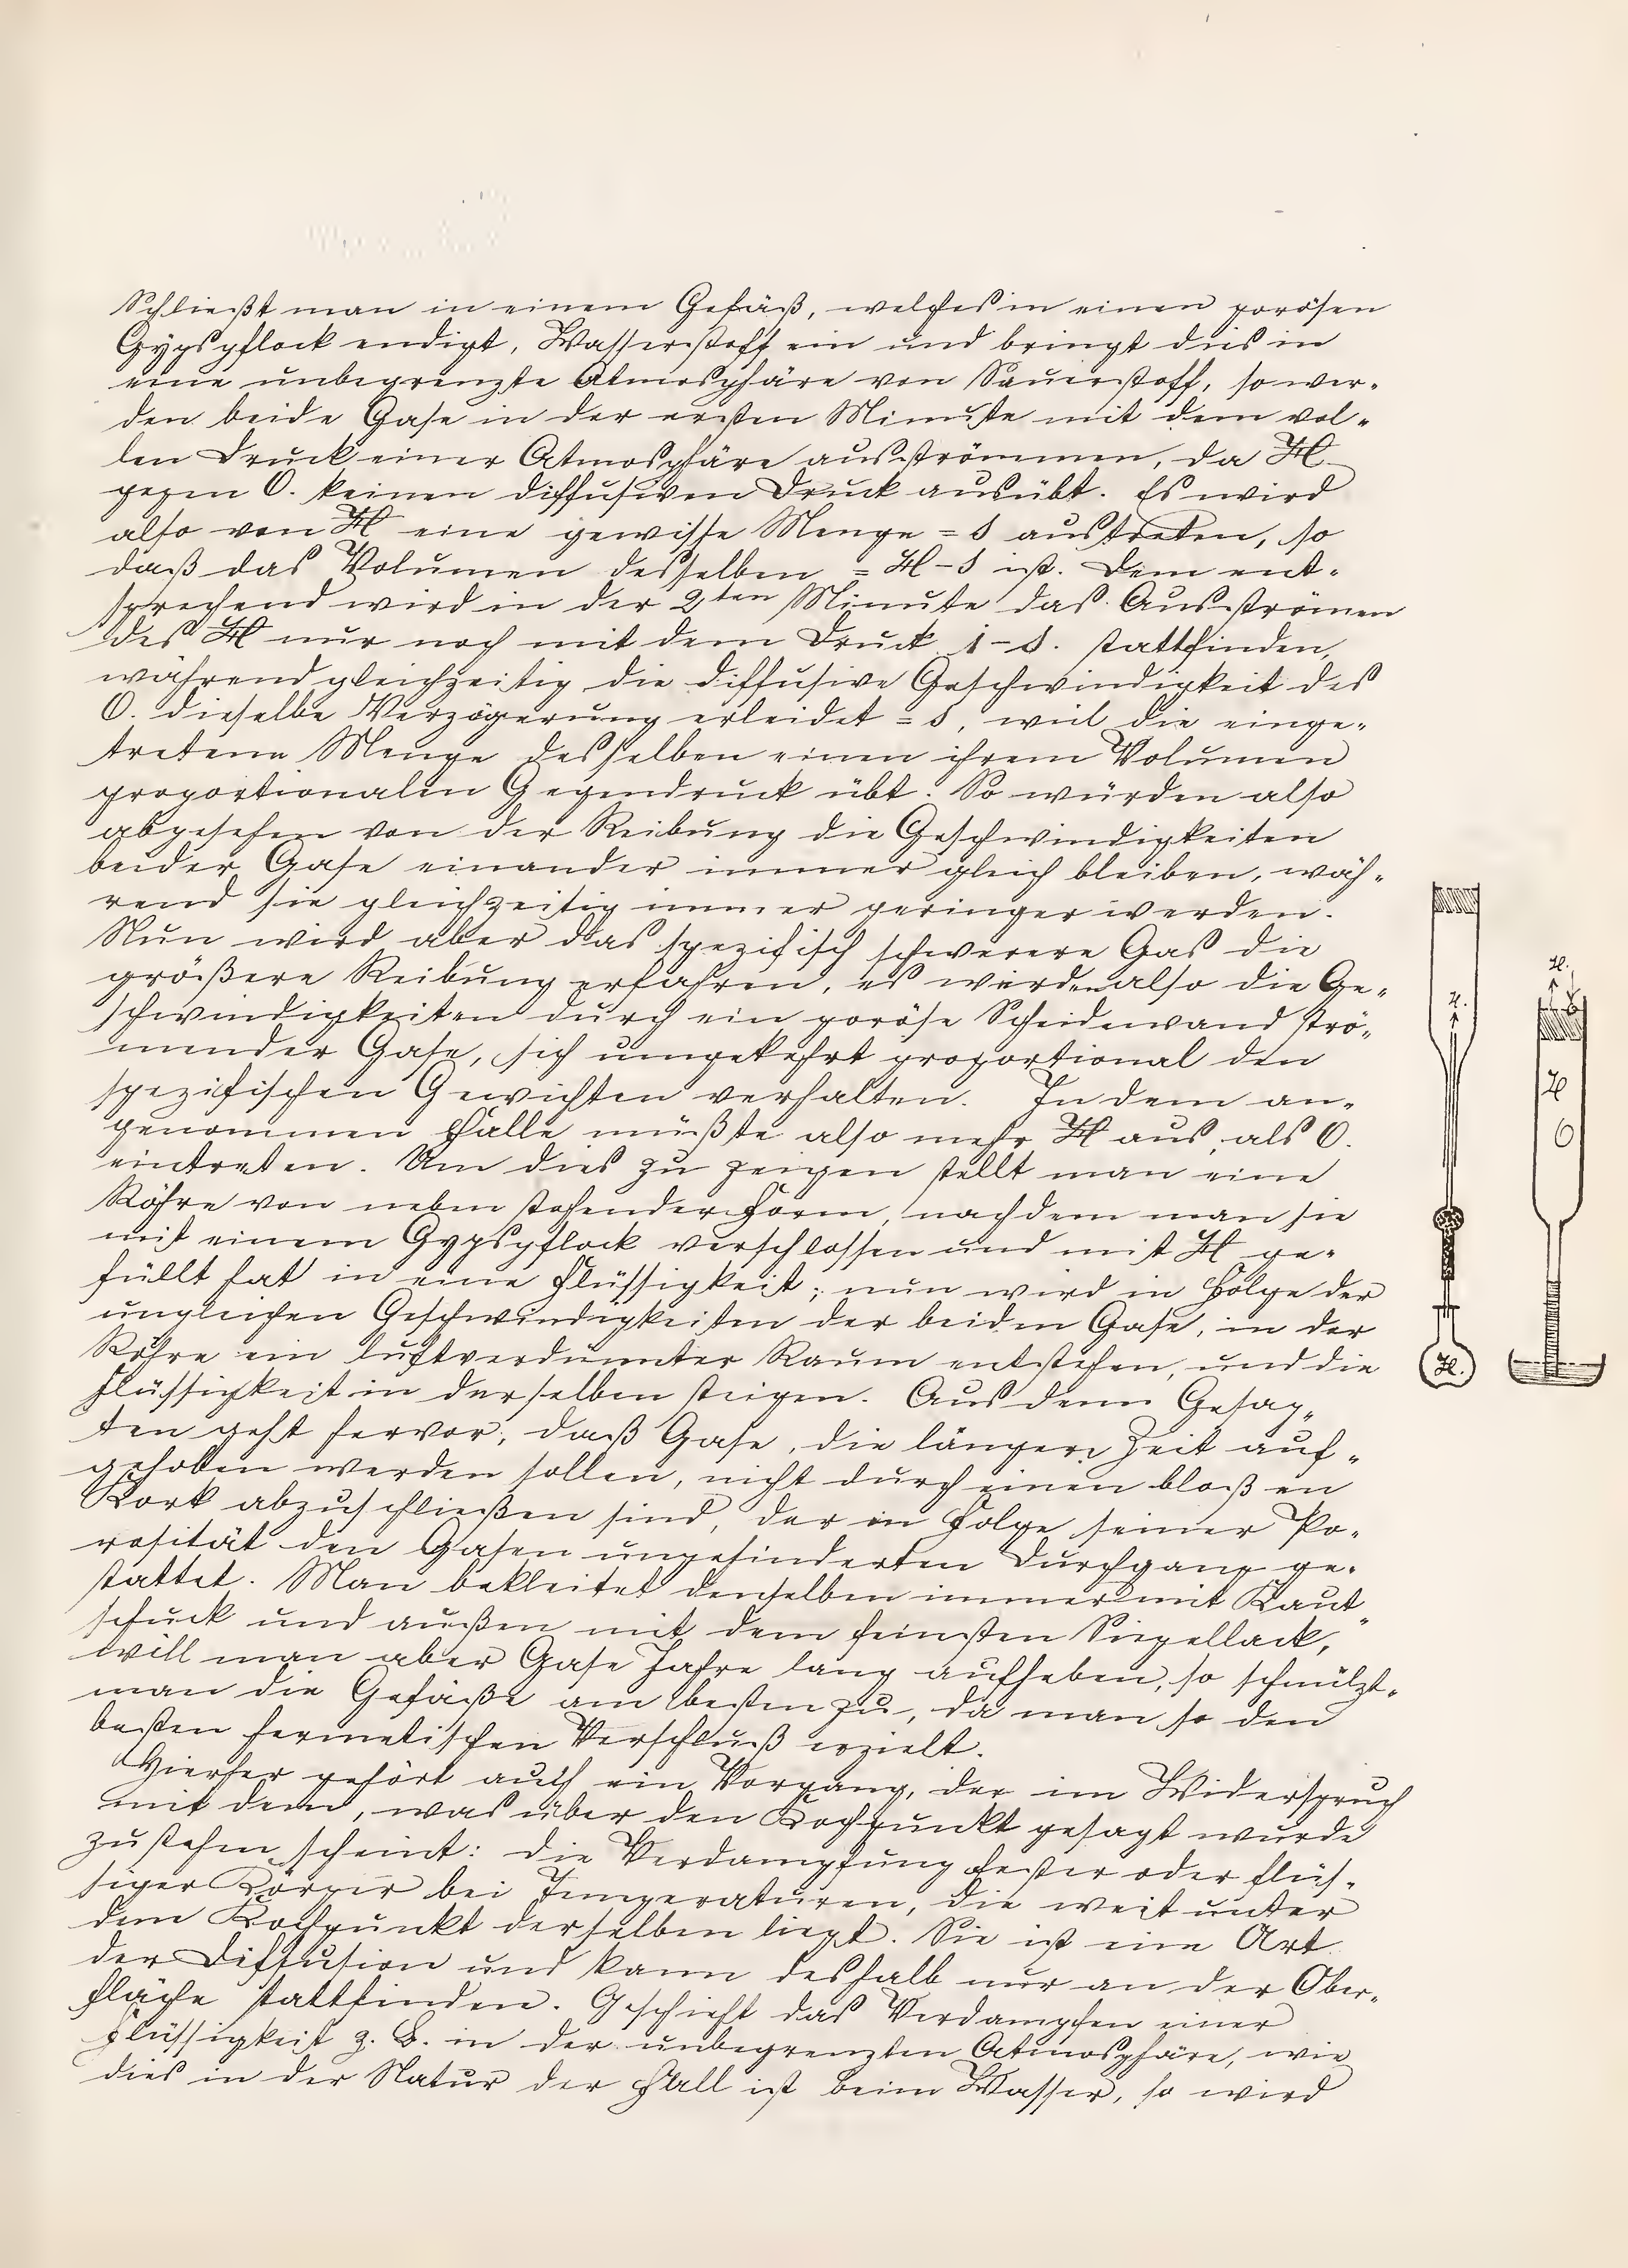 Schließt man in einem Gefäß, welches in einen porösen
Gypspflock endigt, Wasserstoff ein und bringt dies in
eine unbegrenzte Atmosphäre von Sauerstoff, so wer-
den beide Gase in der ersten Minute mit dem vol-
len Druck einer Atmosphäre ausströmmen, da H
gegen O. keinen diffusiven Druck ausübt. Es wird
also von H eine gewisse Menge = δ austreten, so
daß das Volumen desselben = H-δ ist. Dem ent-
sprechend wird in der 2ten Minute das Ausströmen
des H nur noch mit dem Druck 1-δ. stattfinden,
während gleichzeitig die diffusive Geschwindigkeit des
O. dieselbe Verzögerung erleidet = δ, weil die einge-
tretene Menge desselben einen ihrem Volumen
proportionalen Gegendruck übt. So würden also
abgesehen von der Reibung die Geschwindigkeiten
beider Gase einander immer gleich bleiben, wäh-
rend sie gleichzeitig immer geringer werden.
Nun wird aber das spezifisch schwerere Gas die
größere Reibung erfahren, es werden also die Ge-
schwindigkeiten durch ein poröse Scheidewand strö-
mender Gase, sich umgekehrt proportional den
spezifischen Gewichten verhalten. In dem an-
genommen Falle müßte also mehr H aus, als O.
eintreten. Um dies zu zeigen stellt man eine
Röhre von neben stehender Form, nachdem man sie
mit einem Gypspflock verschlossen und mit H ge-
füllt hat in eine Flüssigkeit; nun wird in Folge der
ungleichen Geschwindigkeiten der beiden Gase, in der
Röhre ein luftverdünnter Raum entstehen, und die
Flüssigkeit in derselben steigen. Aus dem Gesag-
ten geht hervor, daß Gase, die längere Zeit auf-
gehoben werden sollen, nicht durch einen bloßen
Kork abzuschließen sind, der in Folge seiner Po-
rosität den Gasen ungehinderten Durchgang ge-
stattet. Man bekleitet denselben immer mit Kaut-
schuck und außen mit dem feinsten Siegellack,
will man aber Gase Jahre lang aufheben, so schmilzt
man die Gefäße am besten zu, da man so den
besten hermetischen Verschluß erzielt.
Hierher gehört auch ein Vorgang, der im Widerspruch
mit dem, was über den Kochpunkt gesagt wurde
zu stehen scheint: die Verdampfung fester oder flüs-
siger Körper bei Temperaturen, die weit unter
dem Kochpunkt derselben liegt. Sie ist eine Art
der Diffusion und kann deshalb nur an der Ober-
fläche stattfinden. Geschieht das Verdampfen einer
Flüssigkeit z. B. in der unbegrenzten Atmosphäre, wie
dies in der Natur der Fall ist beim Wasser, so wird
H.
H.
H
O
H.